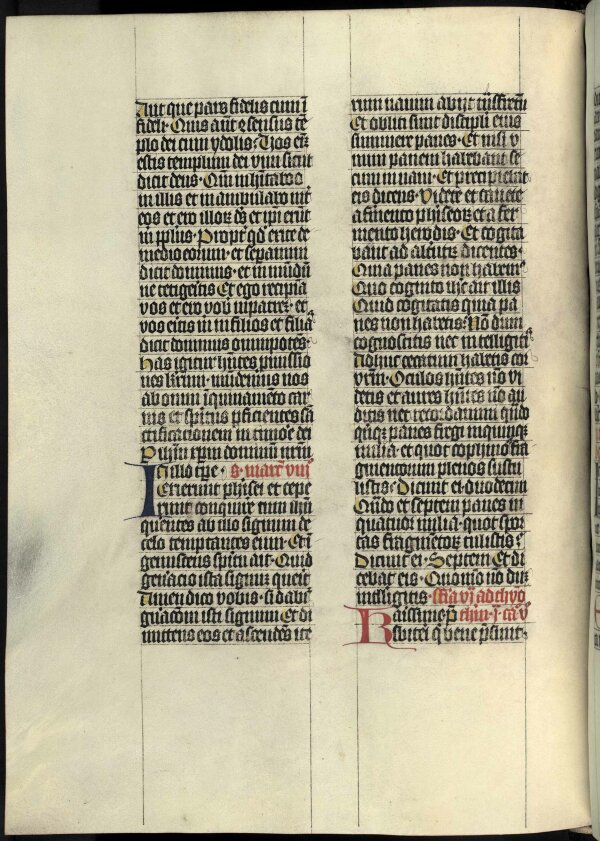 Aut que pars fidelis cum i
fideli· Quis aut̄ ꝯsensus tē
plo dei cum ydolis· Uos ei̅
estis templum dei viui sicut
dicit deus· Qm̄ inhitabo
in illis et inambulabo int̄
eos et ero illoꝝ ds̄ et ipi erūt
m̄ ppl̄us· Proptʳ qd̄ exite de
medio eorum· et sepamini
dicit dominus· et inmūdū
ne tetigeritis Et ego recipiā
vos et ero vob̄ in patrē· et
vos eritis m̄ in filios et filiā
dicit dominus omnipotēs·
Has igitur hn̄tes pmissio
nes kr̄imi· mūdemus nos
ab omni īquinamēto car
nis et spūtus pficientes sā
ctificationem in timoꝛe dei
P uiuū xp̄m dominū nr̄m
In illo tp̄e· s· marc̄ viij
Exierunt phīsei et cepe
runt conquire cum ihū
querentes ab illo signum de
celo temptantes eum· Et ī
gemiscens spiritu ait· Quid
gen̄acio ista signū querit
Amen dico vobis· si dabit̄
gn̄acōni isti signum Et di
mittens eos et ascendēs ite
rum nauim abijt tn̄sfretū
Et obliti sunt discipli eius
sumere panes· Et nisi v
num panem habebant se
cum in naui· Et precipiebat
eis dicens· Videte et cauete
a fm̄ento phīseoꝝ et a fer
mento herodis· Et cogita
bant ad alt̄utrū dicentes·
Quia panes non habem̄
Quo cognito ihc̄ ait illis
Quid cogitatis quia pa
nes non habetis· Nō dum
cognoscitis nec intelligitis
Adhuc cecatum habetis cor
vr̄m· Oculos hn̄tes nō vi
detis et aures hn̄tes nō au
ditis nec recordamini qn̄do
qn̄qꝫ panes fregi in quinqꝫ
milia· et quot cophinos fra
gmentorum plenos sustu
listis· Dicunt ei· duodecim
Qn̄do et septem panes in
quatuor milia· quot spor
tas fragmētoꝝ tulistis·
Dicunt ei· Septem Et di
cebat eis· Quomō nō dum
intelligitis· fr̄ia vj ad thyo
Karissime· p̄ thīm· j· ca̅ v
sbiteri q̄ bene p̄sunt·